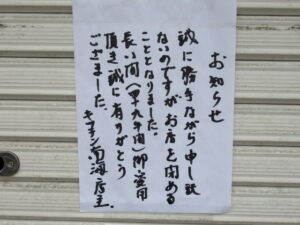 お知らせ
誠に勝手ながら申し訳
ないのですがお店を閉める
こととなりました。
長い間(四十九年間)御愛用
頂き誠に有りがとう
ございました。
キッチン南海店主.